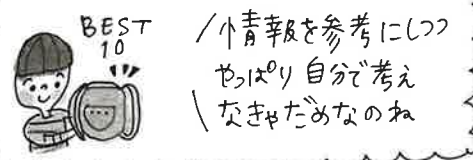 BEST
10
情報を参考にしつつ
やっぱり自分で考え
なきゃだめなのね